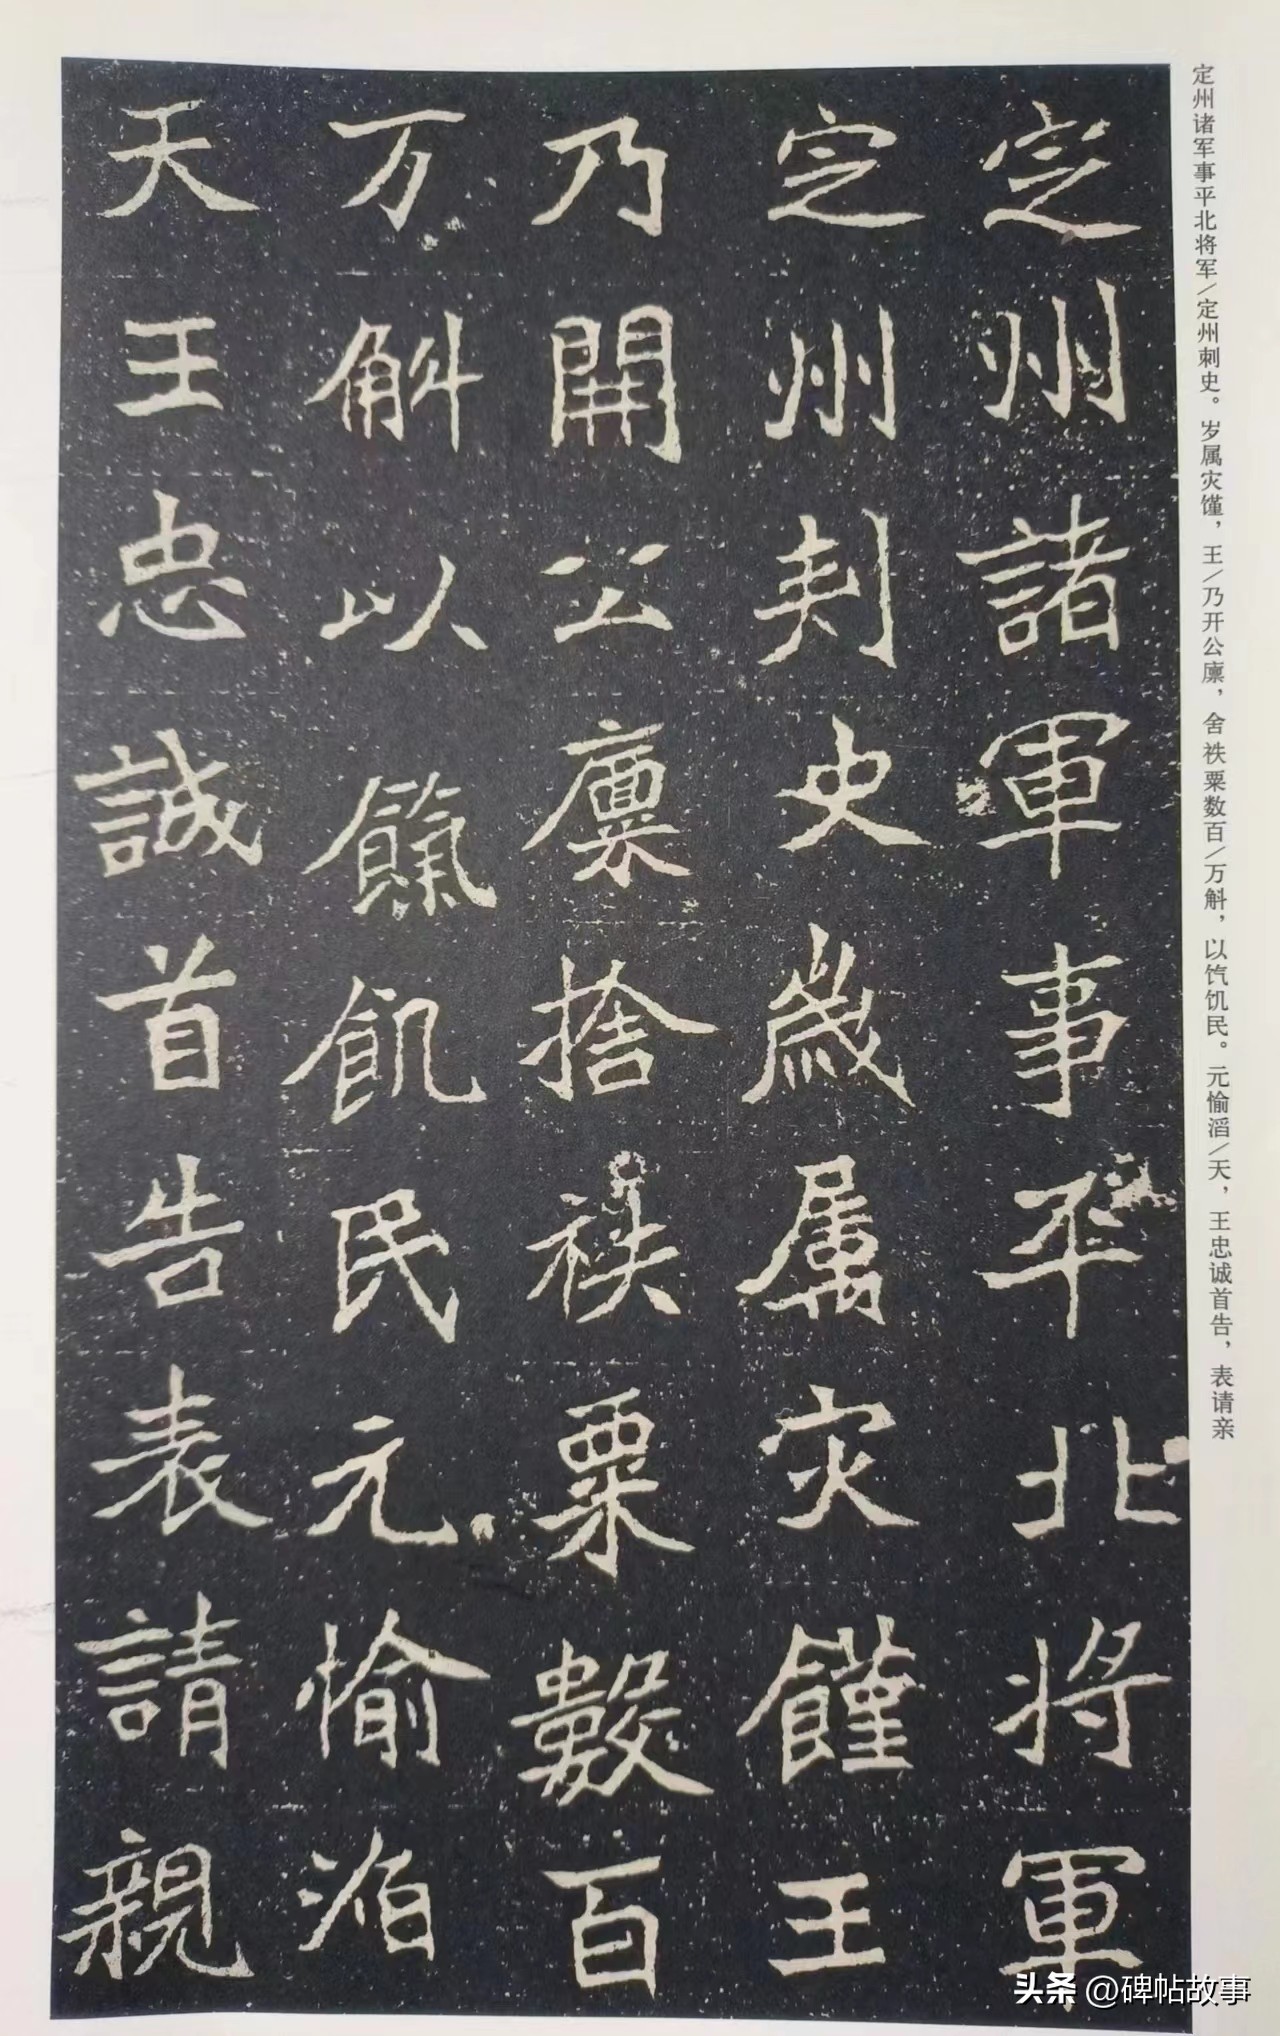 定州诸军事平北将军/定州刺史。岁属灾馑，王/乃开公廪，舍袟粟数百/万斛，以饩饥民。元愉滔/天，王忠诚首告，表请亲
定州諸軍事平北将軍
定州刾史歲属灾饉王
乃開公廩捨袟粟數百
万斛以餼飢民元愉滔
天王忠誠首告表請親
头条 @碑帖故事